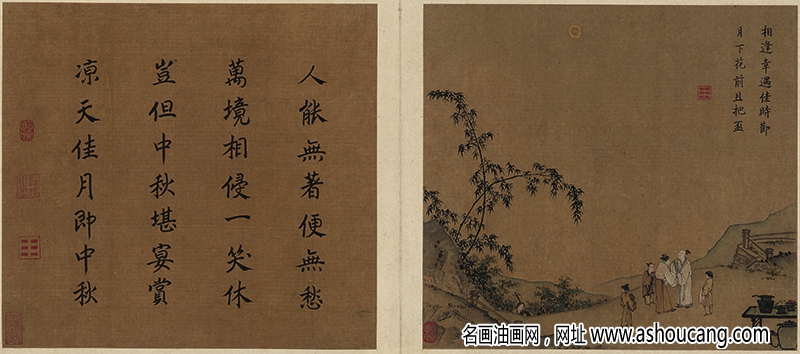 相逢幸遇佳時節
月下花前且把盃
人能無著便無愁
萬境相侵一笑休
豈但中秋堪宴賞
涼天佳月即中秋
名画油画网，网址 www.ashoucang.com